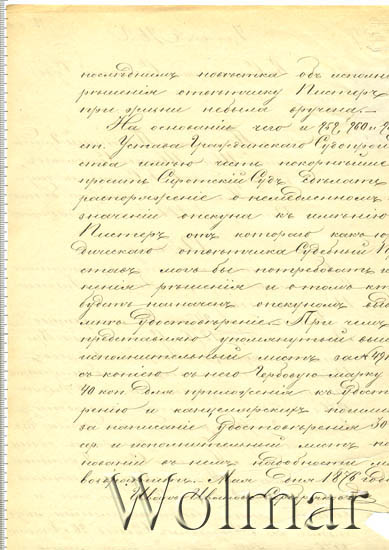 послѣднимъ повѣстка объ исполн
рѣшенія отвѣтчику Пистеръ
при жизни небыла вручена. —
На основаніи чего и 259, 260 и 2
ст. Устава Гражданскаго Судопрои
ства имѣю честь покорнѣйше
просить Сиротскій Судъ сдѣлать
распоряженіе о немедленномъ
значеніи опекуна къ имѣнію
Пистеръ отъ котораго какъ ю
дическаго отвѣтчика Судебный П
ставъ могъ бы потребовать и
ненія рѣшенія и о томъ кт
будетъ назначенъ опекуномъ выд
мнѣ удостовѣреніе. — При чемъ
представляю упомянутый выш
исполнительный листъ за № 491
съ копіею съ него Гербовую марку
40 коп. для приложенія къ удост
ренію и канцелярскихъ пошли
за написаніе удостовѣренія 30
и исполнительный листъ по
нованіи въ немъ надобности м
возвратить. Мая дня 1876 года
Wolmar